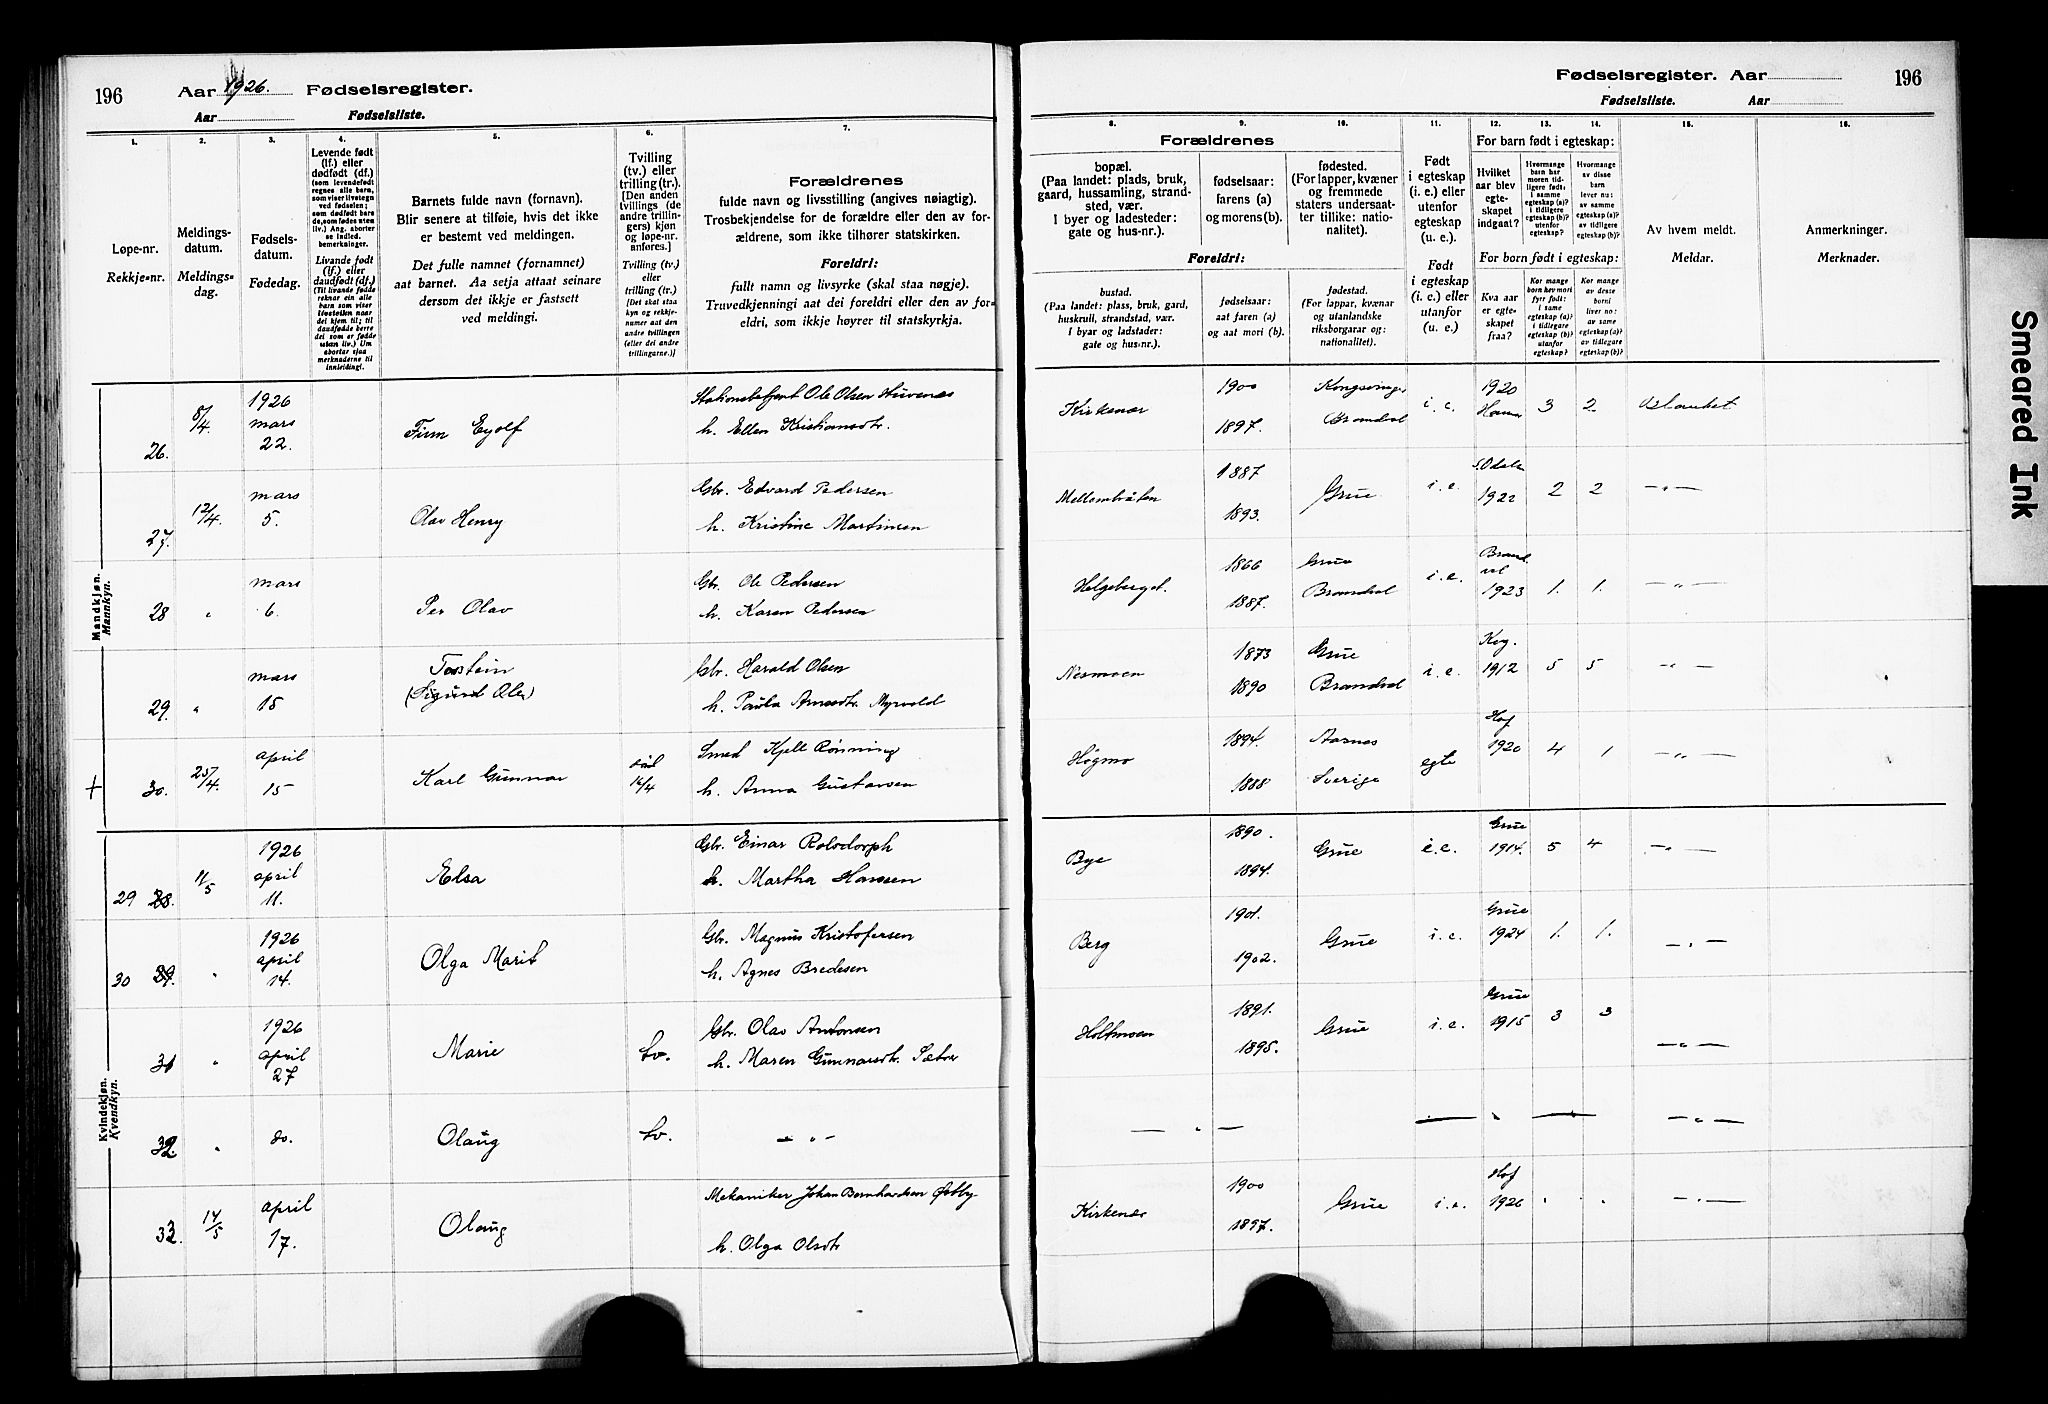 196
Aar 1926. Fødselsregister.
Aar Fødselsliste.
1. 2. 3. 4. 5. 6. 7.
Løpe-nr.
Rekkje-nr.
Meldings-
datum.
Meldings-
dag.
Fødsels-
datum.
Fødedag.
Levende født
(lf.) eller
dødfødt (df.)
(som levendefødt
regnes alle barn,
som viser livstegn
ved fødselen;
som dødfødt bare
de, som fødes uten
liv.) Ang. aborter
se indled.
bemerkninger.
Livande født
(lf.) eller
daudfødt (df.)
(Til livande fødde
reknar ein alle
barn som viser
livsteikn naar
dei kjem til; til
daudfødde berre
dei som er fødde
utan liv.) Um
abortar sjaa
merknaderne til
innleiding.
Barnets fulde navn (fornavn).
Blir senere at tilføie, hvis det ikke
er bestemt ved meldingen.
Det fulle namnet (fornamnet)
aat barnet. Aa setja attaat seinare
dersom det ikkje er fastsett
ved meldingi.
Tvilling
(tv.) eller
trilling (tr.).
[Den anden
tvillings (de
andre trillin-
gers) kjøn
og løpe-nr.
anføres.]
Tvilling (tv.)
eller
trilling (tr.)
[Det skal staa
kyn og rekkje-
numer aat den
andre tvillingen
(eller dei andre
trillingarne.)]
Forældrenes
fulde navn og livsstilling (angives nøiagtig).
Trosbekjendelse for de forældre eller den av for-
ældrene, som ikke tilhører statskirken.
Foreldri:
fullt namn og livsyrke (skal staa nøgje).
Truvedkjenningi aat dei foreldri eller den av for-
eldri, som ikkje høyrer til statskyrkja.
Mandkjøn.
Mannkyn.
26. 8/4. 1926 mars 22. Finn Eyolf Stationsbetjent Ole Olsen Huvenæs
h. Ellen Kristiansdtr.
27. 12/4. mars 5. Olav Henry Gbr. Edvard Pedersen
h. Kristine Martinsen
28 " mars 6. Per Olav Gbr. Ole Pedersen
h. Karen Pedersen
29. " mars 15 Torstein
(Sigurd Olav) Gbr. Harald Olsen
h. Paula Arnesdtr. Myrvold
+ 30. 25/4. april 15 Karl Gunnar død 16/4 Smed Kjell Rønning
h. Anna Gustavsen
Kvindekjøn.
Kvendkyn.
29 28. 11/5 1926 april 11. Elsa Gbr. Einar Rolsdorph
h. Martha Hansen
30 29. " 1926 april 14. Olga Marit Gbr. Magnus Kristofersen
h. Agnes Bredesen
31 " 1926 april 27 Marie tv. Gbr. Olav Antonsen
h. Maren Gunnarsdtr. Sæter
32. " do. Olaug tv. — " —
33. 14/5 april 17. Olaug Mekaniker Johan Bernhardsen Østby
h. Olga Olsdtr.
Fødselsregister. Aar 196
Fødselsliste. Aar
8. 9. 10. 11. 12. 13. 14. 15. 16.
Forældrenes
bopæl.
(Paa landet: plads, bruk,
gaard, hussamling, strand-
sted, vær.
I byer og ladesteder:
gate og hus-nr.).
fødselsaar:
farens (a)
og morens (b).
fødested.
(For lapper, kvæner
og fremmede
staters undersaat-
ter tillike: natio-
nalitet).
Foreldri:
bustad.
(Paa landet: plass, bruk, gard,
huskrull, strandstad, vær.
I byar og ladstader:
gate og hus-nr.).
fødselsaar:
aat faren (a)
og aat mori (b).
fødestad.
(For lappar, kvænar
og utanlandske
riksborgarar og:
nationalitet).
Født
i egteskap
(i. e.) eller
utenfor
egteskap
(u. e.).
Født
i egteskap
(i. e.) eller
utanfor
(u. e.).
For barn født i egteskap:
Hvilket
aar blev
egte-
skapet
indgaat?
Hvormange
barn har
moren tid-
ligere født:
i samme
egteskap (a)?
i tidligere
egteskap (b)?
utenfor
egteskap?
Hvormange
av disse
barn
lever nu:
av samme
egteskap (a)?
av tidligere
egteskap (b)?
For barn født i egteskap:
Kva aar
er egte-
skapet
fraa?
Kor mange
born hev mori
fyrr født:
i same
egteskap (a)?
i tidlegare
egteskap (b)?
utanfor
egteskap?
Kor mange
av desse
borni
liver no:
av same
egteskap (a)?
av tidlegare
egteskap (b)?
Av hvem meldt.
Meldar.
Anmerkninger.
Merknader.
Kirkenær 1900 1897. Kongsvinger Brandval i. e. 1920 3 2
Mellembråten 1887 1893. Grue i. e. S. Odalen 1922 2 2 — " —
Helgeberget. 1866 1887. Grue Brandval i. e. Brandval 1923 1. 1. — " —
Nesmoen 1873 1890 Grue Brandval i. e. Kvg. 1912 5 5 — " —
Høgmo 1894. 1888 Aarnes Sverige egte Hof 1920 4 1 — " —
Bye 1890. 1894. Grue i. e. Grue 1914. 5 4 — " —
Berg 1901. 1902. Grue i. e. Grue 1924 1. 1. — " —
Holtmoen 1891. 1895. Grue i. e. Grue 1915 3 3 — " —
— " — — " — — " —
Kirkenær 1900 1897. Grue i. e. Hof 1926 " " — " —
Smeared Ink